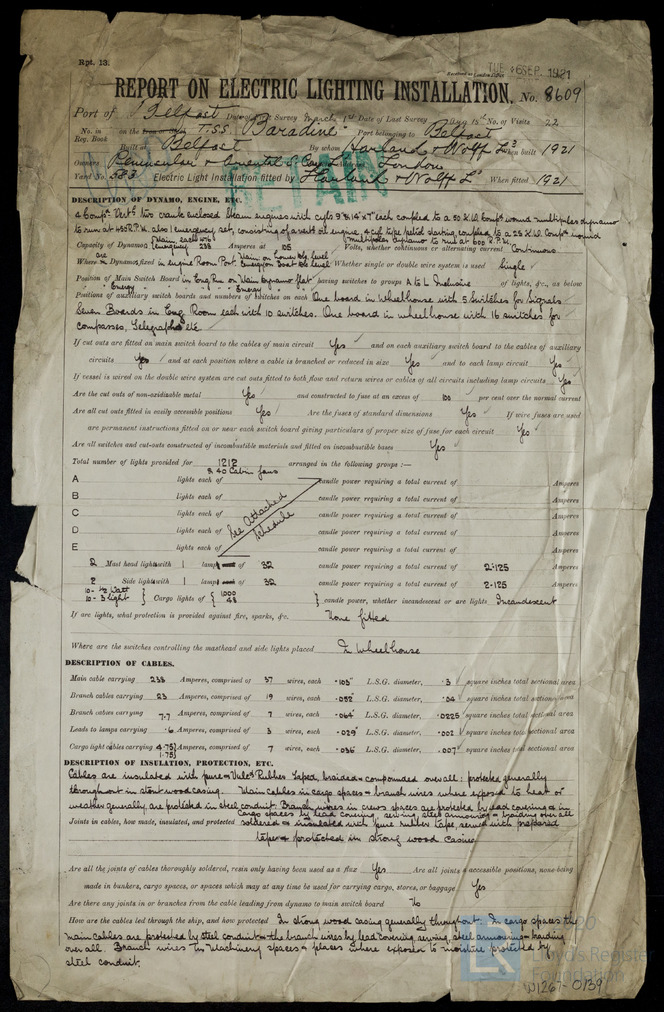 Rpt. 13.
Received at London Office TUE. 6 SEP. 1921
REPORT ON ELECTRIC LIGHTING INSTALLATION. No. 8609
Port of Belfast Date of First Survey March 1st Date of Last Survey Aug 18th No. of Visits 22
No. in Reg. Book on the Iron or Steel T.SS. "Baradine" Port belonging to Belfast
Built at Belfast By whom Harland & Wolff Ld When built 1921
Owners Peninsular & Oriental S. Nav. Co. London
RETAIN
Yard No. 583 Electric Light Installation fitted by Harland & Wolff Ld When fitted 1921
DESCRIPTION OF DYNAMO, ENGINE, ETC.
4 Compd. Vertl. two crank enclosed steam engines with cyls 9" & 14" x 7" each coupled to a 50 K.W. Compd wound multipolar dynamo
to run at 450 R.P.M. also 1 emergency set, consisting of a vert oil engine, 4 cyl type petrol starting coupled to a 25 K.W. Compd wound
multipolar dynamo to run at 600 R.P.M.
Capacity of Dynamos { Main each with Emergency 238 Amperes at 105 Volts, whether continuous or alternating current Continuous
Where are Dynamos fixed in engine Room Port. Main on lower level Emergency on Boat Dk level Whether single or double wire system is used Single
Position of Main Switch Board in Eng Rm on Main dynamo flat having switches to groups A to L Inclusive of lights, &c., as below
" Emergy " " " Emergy
Positions of auxiliary switch boards and numbers of switches on each One board in Wheelhouse with 5 Switches for Signals
Seven Boards in Eng Room each with 10 switches. One board in wheelhouse with 16 switches for
Compasses, Telegraphs etc
If cut outs are fitted on main switch board to the cables of main circuit Yes and on each auxiliary switch board to the cables of auxiliary
circuits Yes and at each position where a cable is branched or reduced in size Yes and to each lamp circuit Yes
If vessel is wired on the double wire system are cut outs fitted to both flow and return wires or cables of all circuits including lamp circuits Yes
Are the cut outs of non-oxidizable metal Yes and constructed to fuse at an excess of 100 per cent over the normal current
Are all cut outs fitted in easily accessible positions Yes Are the fuses of standard dimensions Yes If wire fuses are used
are permanent instructions fitted on or near each switch board giving particulars of proper size of fuse for each circuit Yes
Are all switches and cut-outs constructed of incombustible materials and fitted on incombustible bases Yes
Total number of lights provided for 1212 arranged in the following groups :—
& 40 Cabin fans
A lights each of candle power requiring a total current of Amperes
B lights each of candle power requiring a total current of Amperes
C lights each of candle power requiring a total current of Amperes
D lights each of candle power requiring a total current of Amperes
E lights each of candle power requiring a total current of Amperes
See Attached Schedule
2 Mast head light with 1 lamp each of 32 candle power requiring a total current of 2·125 Amperes
2 Side light with 1 lamp each of 32 candle power requiring a total current of 2·125 Amperes
10 - ½ Watt
10 - 3 light } Cargo lights of { 1000 48 } candle power, whether incandescent or arc lights Incandescent
If arc lights, what protection is provided against fire, sparks, &c. None fitted
Where are the switches controlling the masthead and side lights placed In Wheelhouse
DESCRIPTION OF CABLES.
Main cable carrying 238 Amperes, comprised of 37 wires, each ·103" L.S.G. diameter, ·3 square inches total sectional area
Branch cables carrying 23 Amperes, comprised of 19 wires, each ·052" L.S.G. diameter, ·04 square inches total sectional area
Branch cables carrying 7.7 Amperes, comprised of 7 wires, each ·064" L.S.G. diameter, ·0225 square inches total sectional area
Leads to lamps carrying ·6 Amperes, comprised of 3 wires, each ·029" L.S.G. diameter, ·002 square inches total sectional area
Cargo light cables carrying 4·75 1·75 Amperes, comprised of 7 wires, each ·036" L.S.G. diameter, ·007 square inches total sectional area
DESCRIPTION OF INSULATION, PROTECTION, ETC.
Cables are insulated with pure & Vulcd Rubber Taped, braided & compounded overall: protected generally
throughout in stout wood casing. Main cables in cargo spaces & branch wires where exposed to heat or
weather generally, are protected in steel conduit. Branch wires in crews spaces are protected by lead covering & in
Cargo spaces by lead covering, serving, steel armouring & braiding over all
Joints in cables, how made, insulated, and protected soldered & insulated with pure rubber tape, served with prepared
tape & protected in strong wood casing
Are all the joints of cables thoroughly soldered, resin only having been used as a flux Yes Are all joints in accessible positions, none being
made in bunkers, cargo spaces, or spaces which may at any time be used for carrying cargo, stores, or baggage Yes
Are there any joints in or branches from the cable leading from dynamo to main switch board No
How are the cables led through the ship, and how protected In strong wood casing generally throughout. In cargo spaces the
main cables are protected by steel conduit & the branch wires by lead covering, serving, steel armouring & braiding
over all. Branch wires in Machinery spaces & places where exposed to moisture protected by
steel conduit.
Lloyd's Register
Foundation
W1267-0139